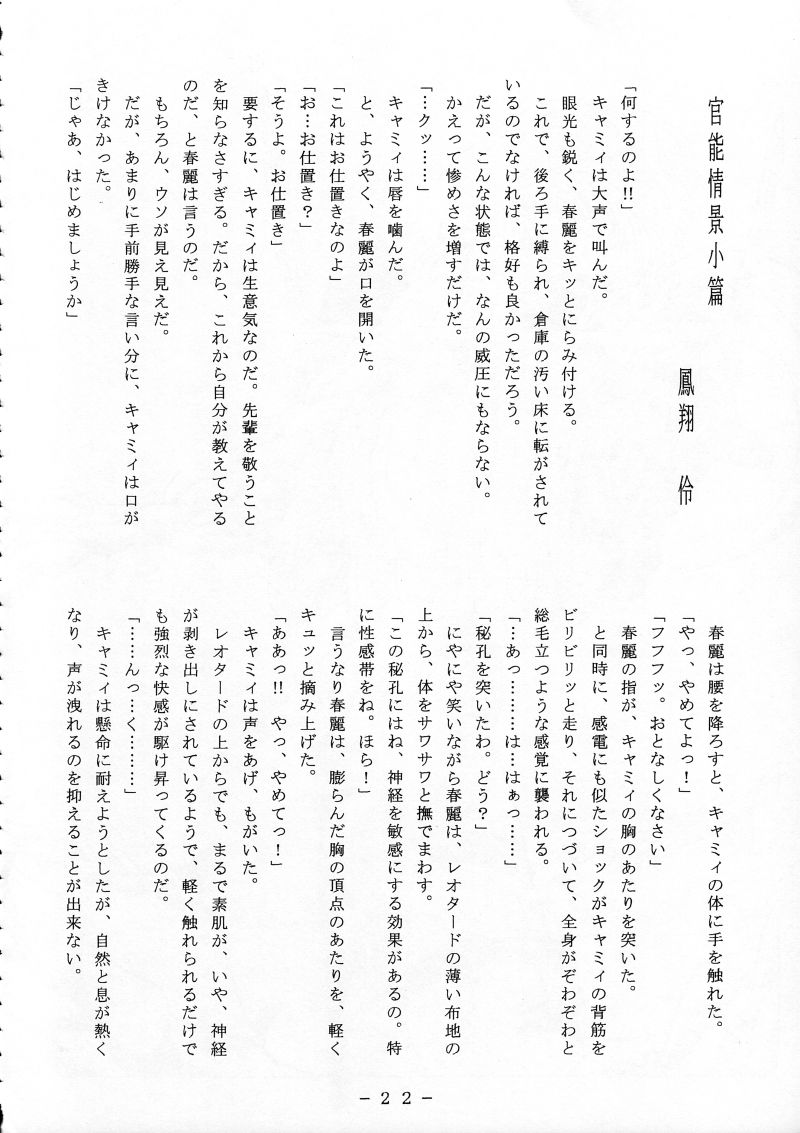 官能情景小篇
鳳翔　伶
「何するのよ!!」
　キャミィは大声で叫んだ。
　眼光も鋭く、春麗をキッとにらみ付ける。
　これで、後ろ手に縛られ、倉庫の汚い床に転がされて
いるのでなければ、格好も良かっただろう。
　だが、こんな状態では、なんの威圧にもならない。
　かえって惨めさを増すだけだ。
「…クッ……」
　キャミィは唇を噛んだ。
　と、ようやく、春麗が口を開いた。
「これはお仕置きなのよ」
「お…お仕置き？」
「そうよ。お仕置き」
　要するに、キャミィは生意気なのだ。先輩を敬うこと
を知らなさすぎる。だから、これから自分が教えてやる
のだ、と春麗は言うのだ。
　もちろん、ウソが見え見えだ。
　だが、あまりに手前勝手な言い分に、キャミィは口が
きけなかった。
「じゃあ、はじめましょうか」
　春麗は腰を降ろすと、キャミィの体に手を触れた。
「やっ、やめてよっ！」
「フフフッ。おとなしくなさい」
　春麗の指が、キャミィの胸のあたりを突いた。
　と同時に、感電にも似たショックがキャミィの背筋を
ビリビリッと走り、それにつづいて、全身がぞわぞわと
総毛立つような感覚に襲われる。
「…あっ………は…はぁっ……」
「秘孔を突いたわ。どう？」
　にやにや笑いながら春麗は、レオタードの薄い布地の
上から、体をサワサワと撫でまわす。
「この秘孔にはね、神経を敏感にする効果があるの。特
に性感帯をね。ほら！」
　言うなり春麗は、膨らんだ胸の頂点のあたりを、軽く
キュッと摘み上げた。
「ああっ!!　やっ、やめてっ！」
　キャミィは声をあげ、もがいた。
　レオタードの上からでも、まるで素肌が、いや、神経
が剥き出しにされているようで、軽く触れられるだけで
も強烈な快感が駆け昇ってくるのだ。
「……んっ…く………」
　キャミィは懸命に耐えようとしたが、自然と息が熱く
なり、声が洩れるのを抑えることが出来ない。
－２２－